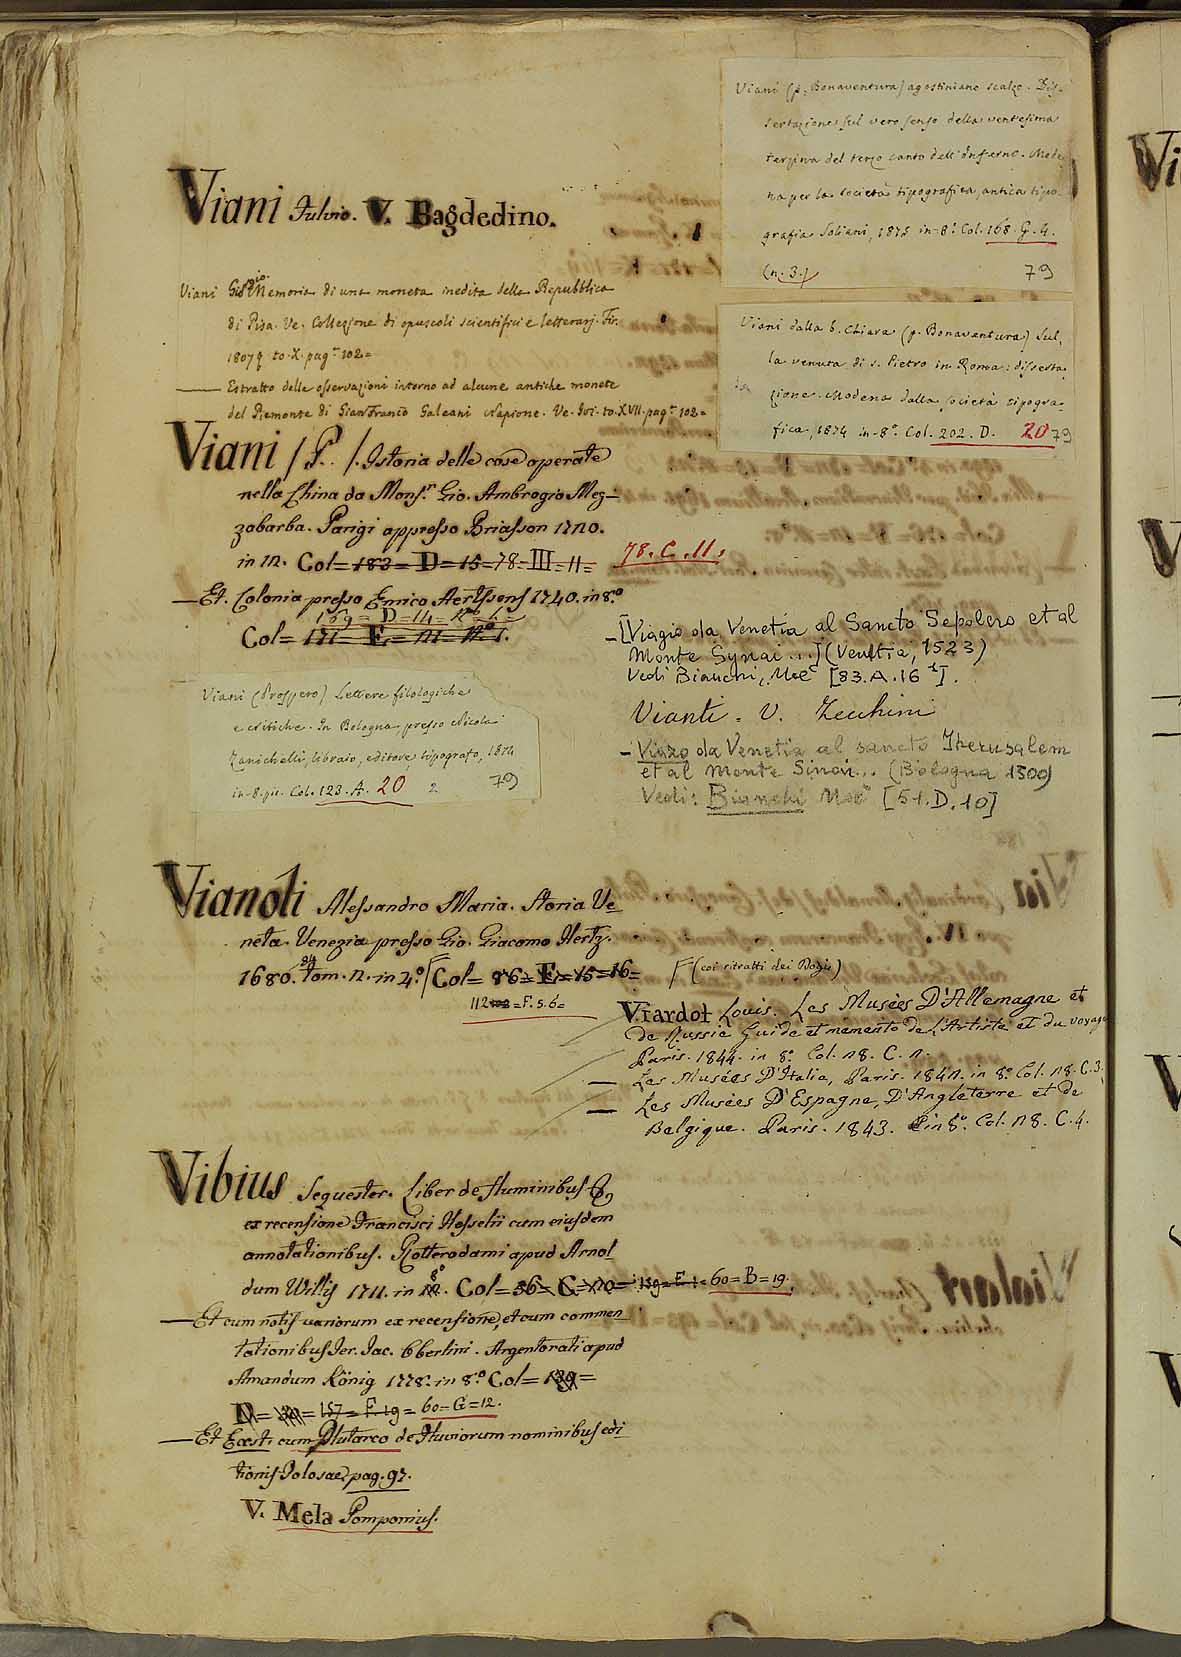 Viani Fulvio. V. Bagdedino.
Viani Gio. Memoria di una moneta inedita della Repubblica
di Pisa. Ve. Collezione di opuscoli scientifici e letterarj. Fir.
to. X. pag. 102=
— Estratto delle osservazioni intorno ad alcune antiche monete
del Piemonte di Gianfranco Galeani Napione. Ve. Ivi. to. XVII. pag. 102=
Viani / P. . /. Istoria delle cose operate
nella China da Mons.r Gio. Ambrogio Mez-
zabarba. Parigi appresso Briasson
in 12. Col= 183= D= 15=78=III=11=
78. C. 11.
— Et. Colonia presso Enrico Aertssens 1740. in 8.o
169= D=14=
Col= 171= E=
Viani (Prospero) Lettere filologiche
e critiche. In Bologna, presso Nicola
Zanichelli, libraio, editore, tipografo, 1874
in-8. pic. Col. 123. A. 20
2 79
Vianoli Alessandro Maria. Storia Ve-
neta. Venezia presso Gio. Giacomo Hertz.
1680. 84 tom. 2. in 4.o Col= 86= E=15=16=
112 =F. 5.6=
Vibius Sequester. Liber de fluminibus &
ex recensione Francisci Hesselii cum eiusdem
annotationibus. Rotterodami apud Arnol-
dum Willis 1711. in 8o. Col= 56= C= =159=E 1=60=B=19.
— Et cum notis variorum ex recensione, et cum commen-
tationibus Jer. Jac. Oberlini. Argentorati apud
Amandum König 1778. in 8.o Col= 139=
D= =157=F. 19= 60=G=12.
— Et Exsti cum Plutarco de Fluviorum nominibus edi-
tionis Tolosae, pag. 97.
V. Mela Pomponius.
Viani (p. Bonaventura) agostiniano scalzo. Dis-
sertazione sul vero senso della ventesima
terzina del terzo canto dell'Inferno. Mode-
na per la società tipografica, antica tipo-
grafia Soliani, 1875 in-8.o Col. 168. G. 4.
(n. 3.) 79
Viani dalla b. Chiara (p. Bonaventura) Sul-
la venuta di s. Pietro in Roma: disserta-
zione. Modena dalla società tipogra-
fica, 1874 in-8.o Col. 202. D. 20 79
— [Viagio da Venetia al Sancto Sepolcro et al
Monte Synai ...] (Venetia, 1523)
Vedi Bianchi, Noè [83. A. 16]
Vianti. V. Zecchini
— Viazo da Venetia al sancto Iherusalem
et al monte Sinai... (Bologna 1500)
Vedi: Bianchi Noè [51. D. 10]
(coi ritratti dei Dogi)
Viardot Louis. Les Musées D'Allemagne et
de Russie Guide et memento de L'Artiste et du voyage
Paris. 1844. in 8.o Col. 28. C. 2.
— Les Musées D'Italie, Paris. 1842. in 8.o Col. 28. C. 3.
— Les Musées D'Espagne, D'Angleterre et de
Belgique. Paris. 1843. in 8.o Col. 28. C. 4.